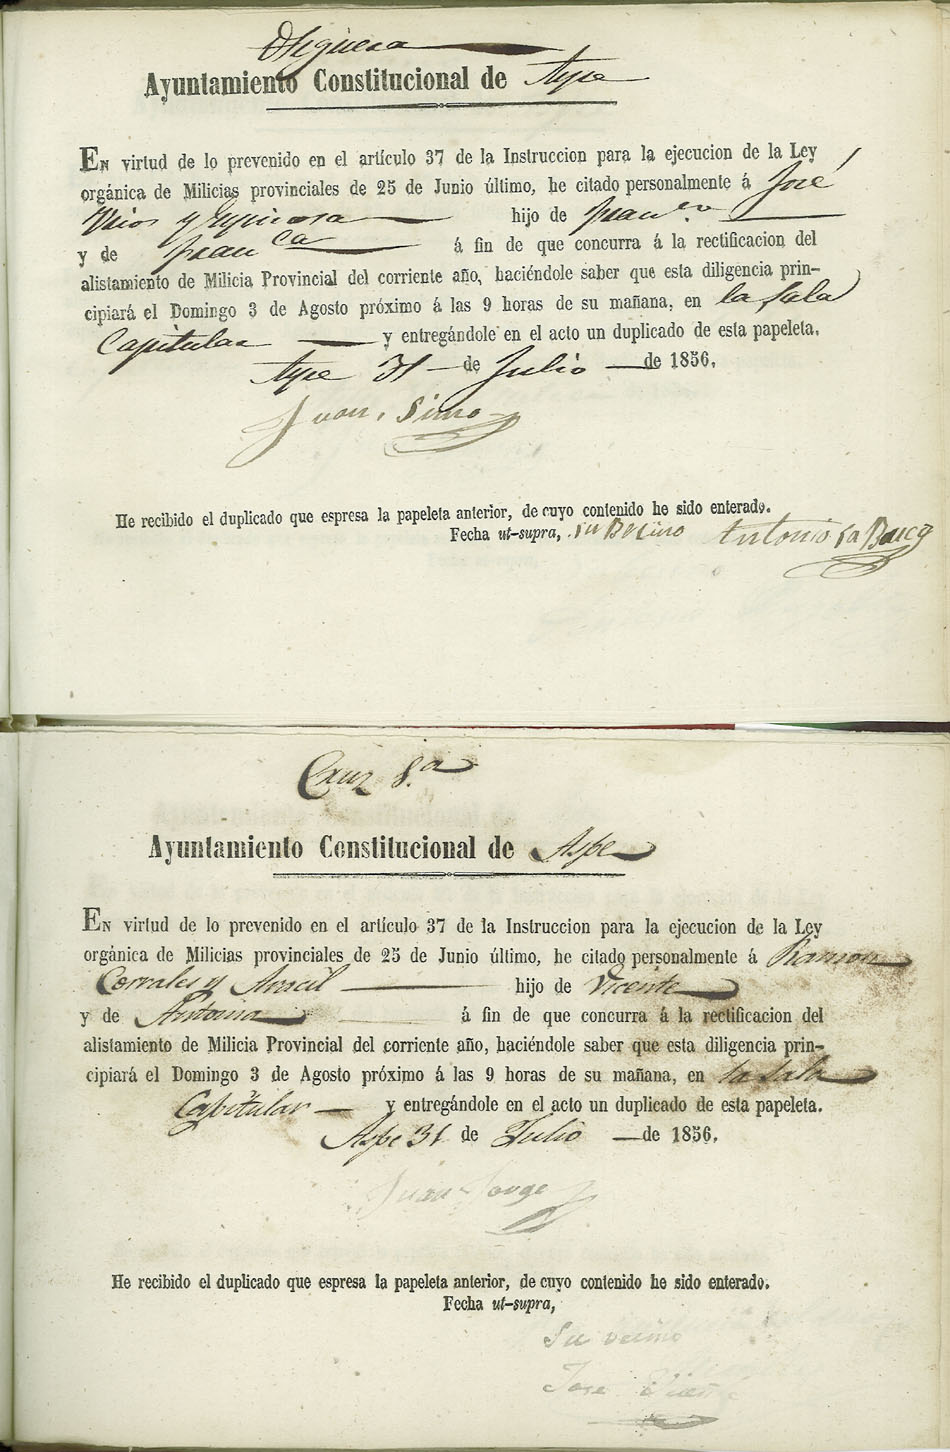 Ayuntamiento Constitucional de Aspe
EN virtud de lo prevenido en el artículo 37 de la Instruccion para la ejecucion de la Ley
orgánica de Milicias provinciales de 25 de Junio último, he citado personalmente á José
y Espinosa hijo de Fran.co
y de Fran.ca á fin de que concurra á la rectificacion del
alistamiento de Milicia Provincial del corriente año, haciéndole saber que esta diligencia prin-
cipiará el Domingo 3 de Agosto próximo á las 9 horas de su mañana, en la Sala
Capitular y entregándole en el acto un duplicado de esta papeleta.
Aspe 31 de Julio de 1856.
Juan Simo
He recibido el duplicado que espresa la papeleta anterior, de cuyo contenido he sido enterado.
Fecha ut-supra, su Becino Antonio
Cruz 8.a
Ayuntamiento Constitucional de Aspe
EN virtud de lo prevenido en el artículo 37 de la Instruccion para la ejecucion de la Ley
orgánica de Milicias provinciales de 25 de Junio último, he citado personalmente á Ramon
Corrales y Aracil hijo de Vicente
y de Antonia á fin de que concurra á la rectificacion del
alistamiento de Milicia Provincial del corriente año, haciéndole saber que esta diligencia prin-
cipiará el Domingo 3 de Agosto próximo á las 9 horas de su mañana, en la Sala
Capitular y entregándole en el acto un duplicado de esta papeleta.
Aspe 31 de Julio de 1856.
Juan Jorge
He recibido el duplicado que espresa la papeleta anterior, de cuyo contenido he sido enterado.
Fecha ut-supra,
Su vecino
Jose